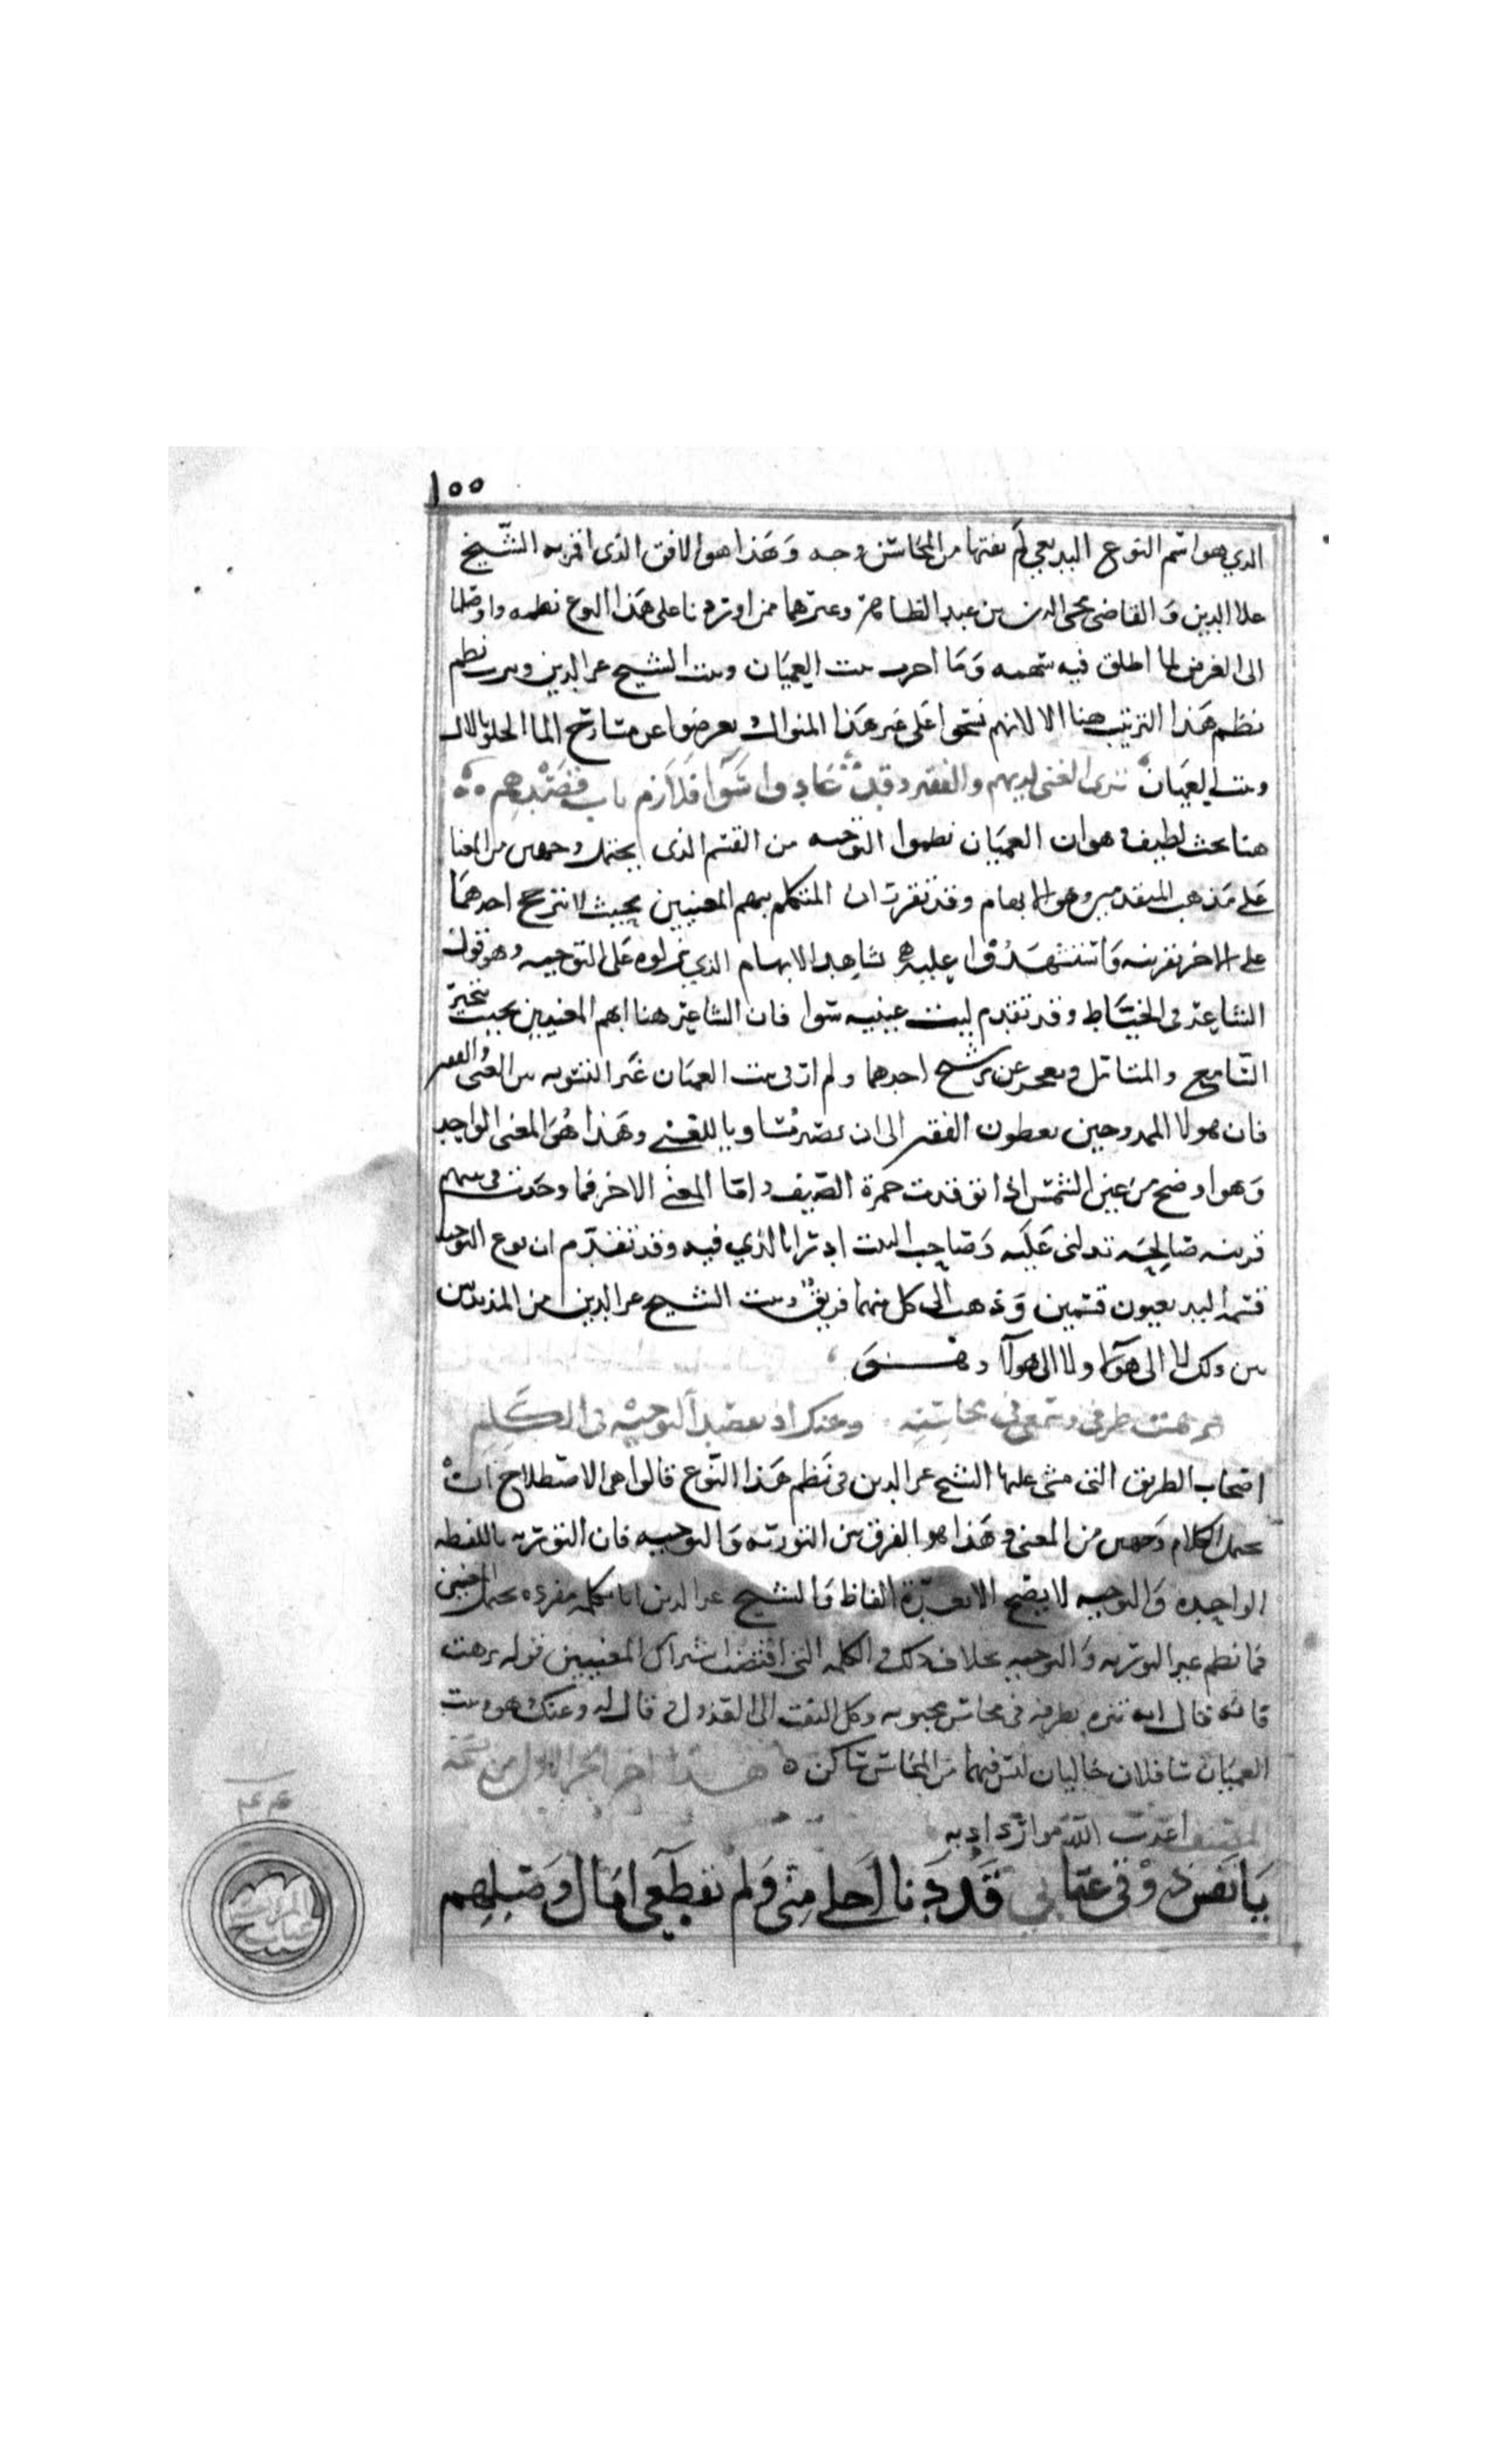 ١٥٥
الذي هو اسم النوع البديعي لم يفتها من المحاسن وجه وهذا هو الافق الذي اقمر به الشيخ
علا الدين والقاضي محي الدين بن عبد الظاهر وغيرهما ممن اوردنا على هذا النوع نظمه واوصلنا
الى الغرض لما اطلق فيه سهمه وما احرب بيت العميان وبيت الشيخ عز الدين وسرب نظم
نظم هذا الترتيب هنا الا لانهم نسجوا على غير هذا المنوال وتعرضوا عن مشارع الما الحلو بالال
وبيت العميان ترى الغني لديهم والفقير وقد عادوا سوا فلازم باب قصدهم
هنا بحث لطيف وهو ان العميان نظموا التوجيه من القسم الذي يحتمل وجهين من المعنا
على مذهب المتقدمين وهو الابهام وقد تقرر ان المتكلم يبهم المعنيين بحيث لا يترجح احدهما
على الاخر بقرينه واستشهدوا عليه بشاهد الابهام الذي نزلوه على التوجيه وهو قول
الشاعر في الخياط وقد تقدم ليت عينيه سوا فان الشاعر هنا ابهم المعنيين بحيث يتحير
السامع والمتامل ويعجز عن ترشيح احدهما ولم ار في بيت العميان غير التسويه بين الغني والفقير
فان هولا الممدوحين يعطون الفقير الى ان يصير مساويا للغني وهذا هو المعنى الواحد
وهو اوضح من عين الشمس اذا اتقدت جمرة الصيف واما المعنى الاخر فما وجدت في بيتهم
قرينه صالحه تدلني عليه وصاحب البيت ادرا بالذي فيه وقد تقدم ان نوع التوجيه
قسمه البديعيون قسمين وذهب الى كل منهما فريق وبيت الشيخ عز الدين من المذبذبين
بين ذلك لا الى هولا ولا الى هولا وهو
نزهت طرفي وسمعي في محاسنه وعنك اذ بعضد التوجيه في الكلم
اصحاب الطريق التي مشى عليها الشيخ عز الدين في نظم هذا النوع قالوا هي الاصطلاح ان
يحتمل الكلام وجهين من المعنى وهذا هو الفرق بين التوريه والتوجيه فان التوريه باللفظه
الواحده والتوجيه لا يصح الا بعدة الفاظ والشيخ عز الدين اتا بكلمه مفرده تحتمل المعنيين
فما نظم غير التوريه والتوجيه بخلاف ذلك والكلمه التي اقتضت اشتراك المعنيين قوله نزهت
فانه قال انه تنزه بطرفه في محاسن محبوبه وكل التفت الى العذول قال له وعنك هو وبيت
العميان سافلان خاليان ليس فيهما من المحاسن ساكن هذا اخر الجزء الاول من نسخة
المصنف اعذب الله موارد ادبه
يا نفس ذوقي عتابي قد دنا اجلي مني ولم تقطعي امال وصلهم